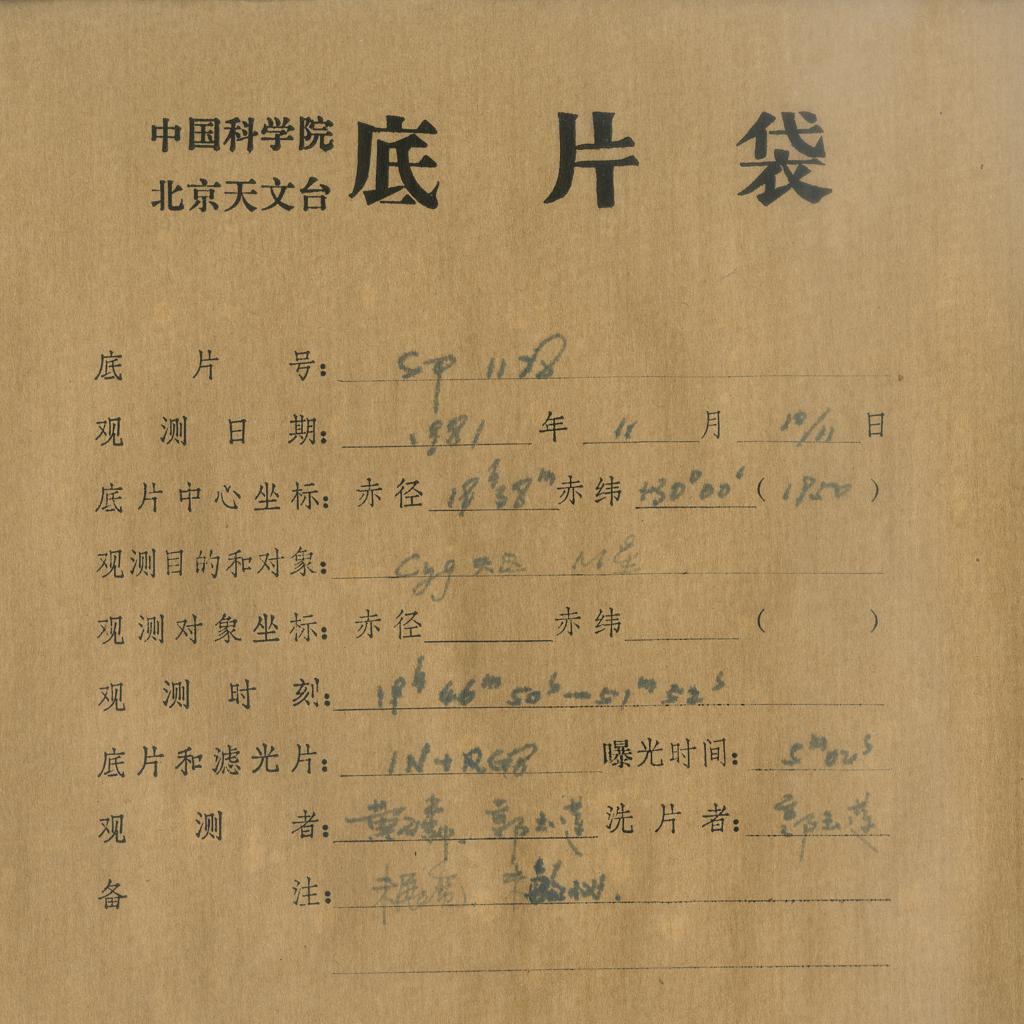 中国科学院
北京天文台
底片袋
底片号: SP 1178
观测日期: 1981 年 11 月 10/11 日
底片中心坐标: 赤径 19ʰ38ᵐ 赤纬 +30°00′ (1950)
观测目的和对象: Cyg 天区 M星
观测对象坐标: 赤径 赤纬 ( )
观测时刻: 19ʰ 46ᵐ 50ˢ—51ᵐ 52ˢ
底片和滤光片: IN+RG8 曝光时间: 5ᵐ02ˢ
观测者: 黄磷 郭玉莲 洗片者: 郭玉莲
备注: 未 未敏化.